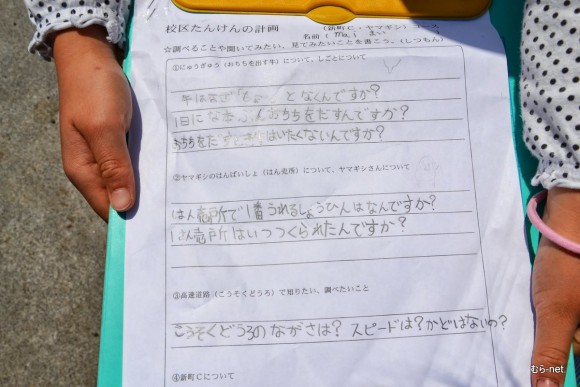 校区たんけんの計画 (新町C・ヤマギシ)コース
名前( まい )
☆調べることや聞いてみたい、見てみたいことを書こう。(しつもん)
①にゅうぎゅう(おちちを出す牛)について、しごとについて
牛はなぜ「も となくんですか?
1日になん おちちをだすんですか?
おちちをだす はいたくないんですか?
②ヤマギシのはんばいしょ(はん売所)について、ヤマギシさんについて
はん売所で1番うれるしょうひんはなんですか?
はん売所はいつつくられたんですか?
③高速道路(こうそくどうろ)で知りたい、調べたいこと
こうそくどうろのながさは? スピードは?かどはないの?
④新町Cについて
むら-net